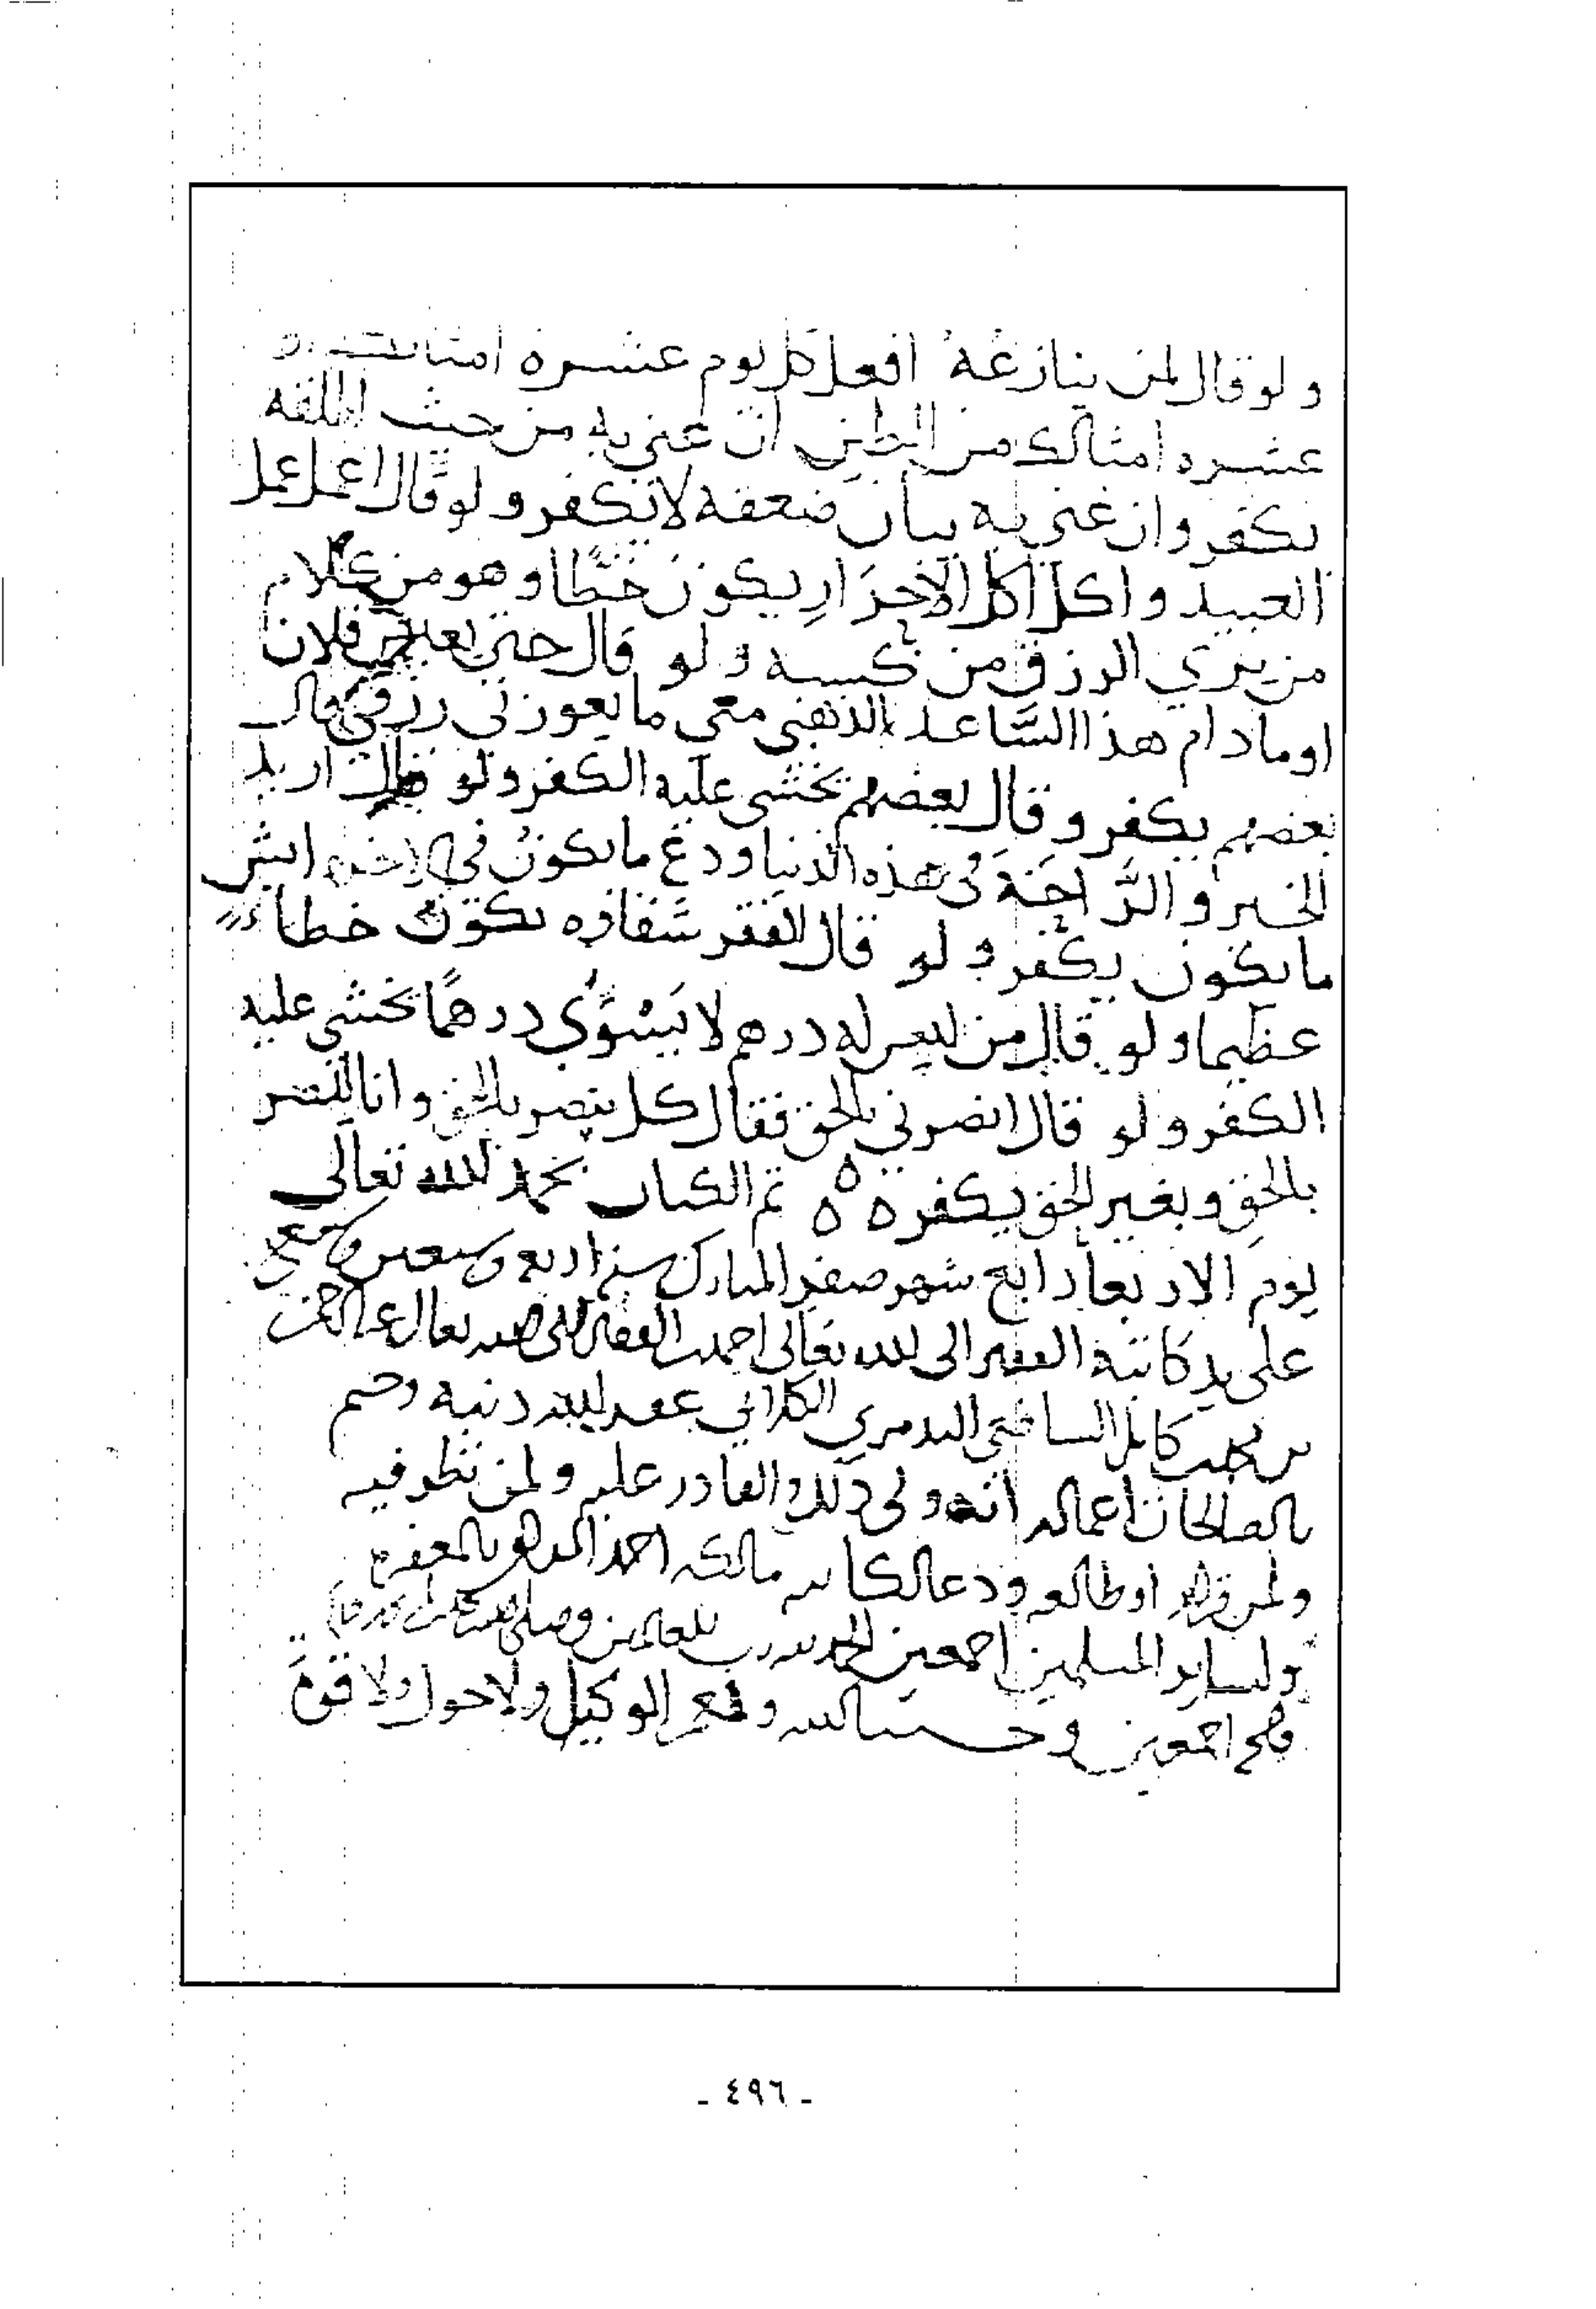 ولو قال لمن ينازعه افعل كل يوم عشره امثالك
عشره امثالك من الطين ان عنى به من حيث الخلقه
يكفر وان عنى به بيان ضعفه لا يكفر ولو قال اعمل عمل
العبيد واكل اكل الاحرار يكون خطا وهو من كلام
من يرى الرزق من كسبه ولو قال حتى فلان
او ما دام هذا الساعد الذهبي معي ما يعوزني رزقي قال
بعضهم يكفر وقال بعضهم يخشى عليه الكفر ولو قال اريد
الخير والراحة في هذه الدنيا ودع ما يكون في الاخره ايش
ما يكون يكفر ولو قال الفقر شقاوه يكون خطاء
عظيما ولو قال من ليس له درهم لا يسوى درهما يخشى عليه
الكفر ولو قال انصرني بالحق فقال كل ينصر بالحق وانا انصر
بالحق وبغير الحق يكفر ه ه ه تم الكتاب بحمد الله تعالى
يوم الاربعا رابع شهر صفر المبارك سنه اربع
على يد كاتبه الفقير الى الله تعالى احمد
الساطي التدمري غفر الله ذنبه وختم
بالصالحات اعماله انه ولي ذلك والقادر عليه ولمن نظر فيه
ولمن قراه او طالعه ودعا لكاتبه مالكه احمد بالمغفره
ولساير المسلمين اجمعين الحمد لله رب العالمين وصلى الله على
اجمعين وحسبنا الله ونعم الوكيل ولا حول ولا قوة
- ٤٩٦ -